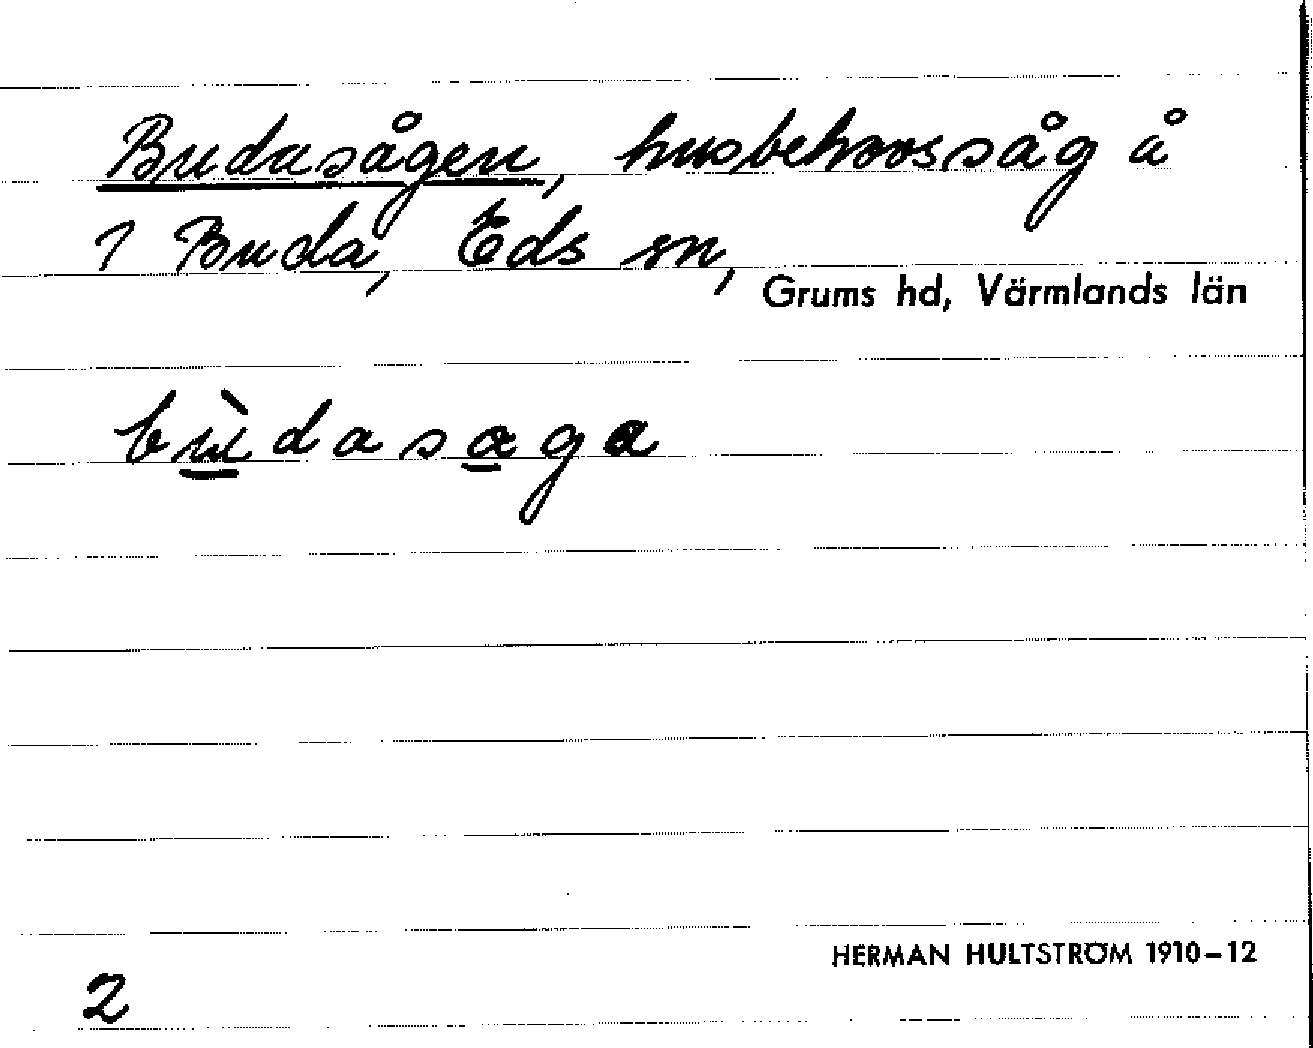 Budasågen, husbehovssåg å
1 Buda, Eds sn,
Grums hd, Värmlands län
bù̲dasa̲ga
HERMAN HULTSTRÖM 1910–12
2